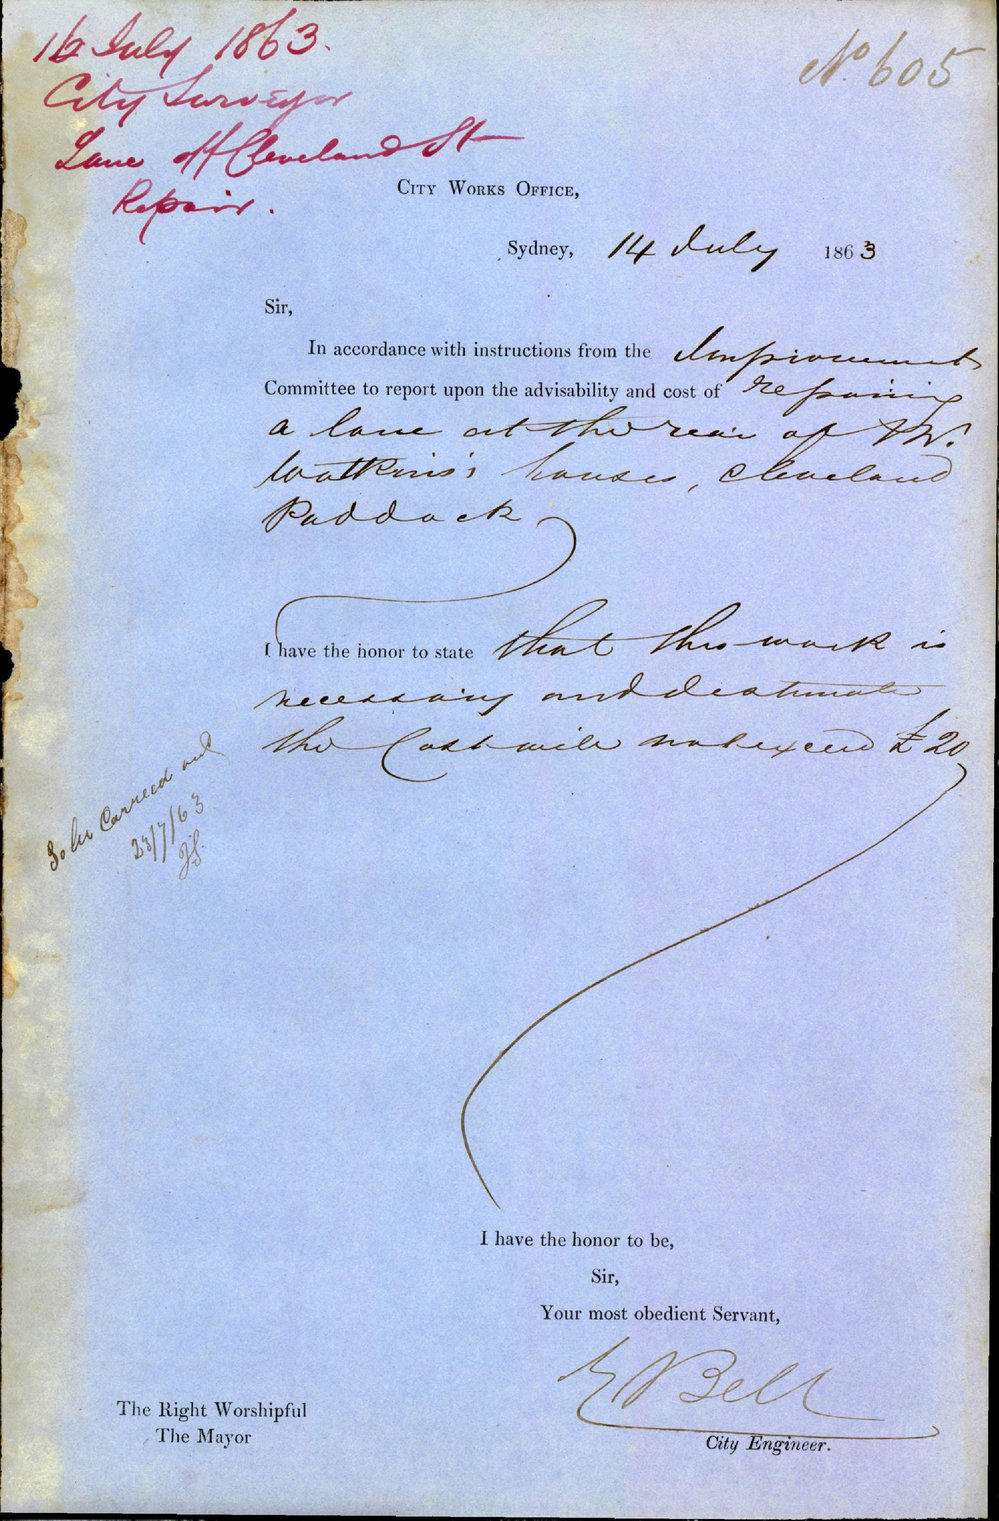 16 July 1863.
City Surveyor
Lane off Cleveland St
Repair.
No. 605
City Works Office,
Sydney, 14 July 1863
Sir,
In accordance with instructions from the Improvement
Committee to report upon the advisability and cost of repairing
a lane at the rear of Mr.
Watkins's houses, Cleveland
Paddock
I have the honor to state that this work is
necessary and I estimate
the Cost will not exceed £20
To be Carried out
23/7/63
I have the honor to be,
Sir,
Your most obedient Servant,
E Bell
City Engineer.
The Right Worshipful
The Mayor